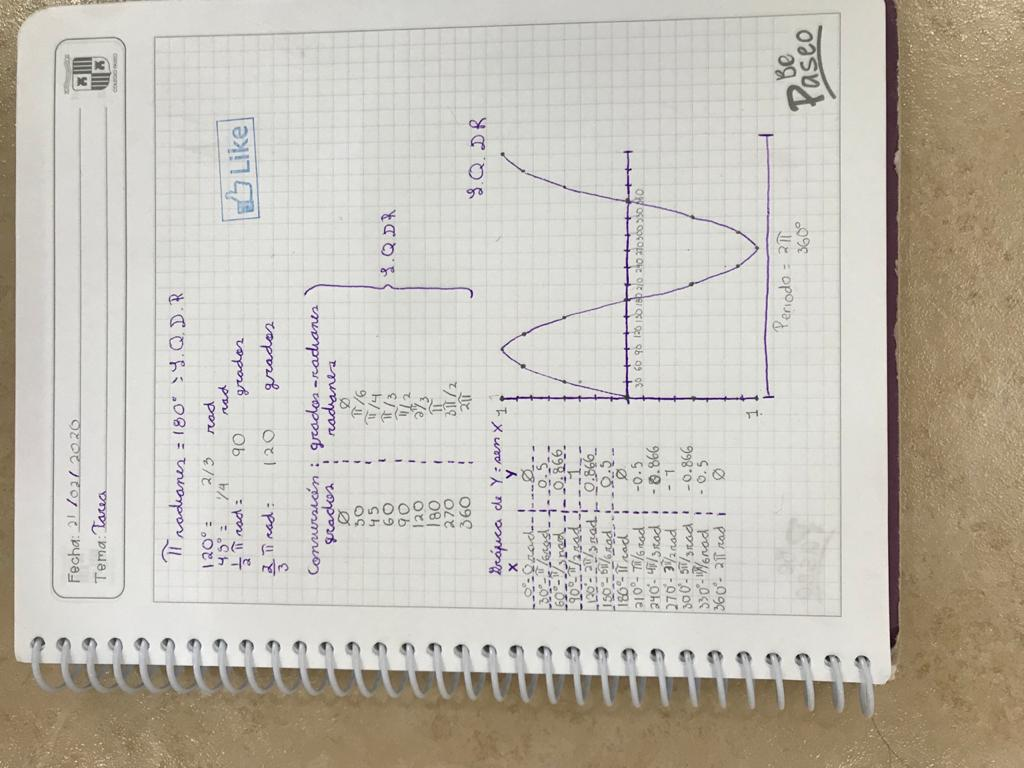 Fecha: 21/02/2020
Tema: Tarea
COLEGIO PASEO
π radianes = 180° : L.Q.D.R
120° = 2/3 rad
45° = 1/4 rad
1/2 π rad = 90 grados
2/3 π rad: 120 grados
Like
Conversión: grados-radianes
grados radianes
Ø Ø
30 π/6
45 π/4
60 π/3
90 π/2
120 2π/3
180 π
270 3π/2
360 2π
L.Q.DR
Gráfica de Y = sen X
X Y
0° - 0 rad Ø
30° - π/6 rad 0.5
60° - π/3 rad 0.866
90° - π/2 rad 1
120 - 2π/3 rad 0.866
150° - 5π/6 rad 0.5
180° π rad Ø
210° - 7π/6 rad -0.5
240° - 4π/3 rad -0.866
270° - 3π/2 rad -1
300° - 5π/3 rad -0.866
330° 11π/6 rad -0.5
360° - 2π rad Ø
L.Q.DR
1
30 60 90 120 150 180 210 240 270 300 330 360
1
Periodo = 2π
360°
Be
Paseo